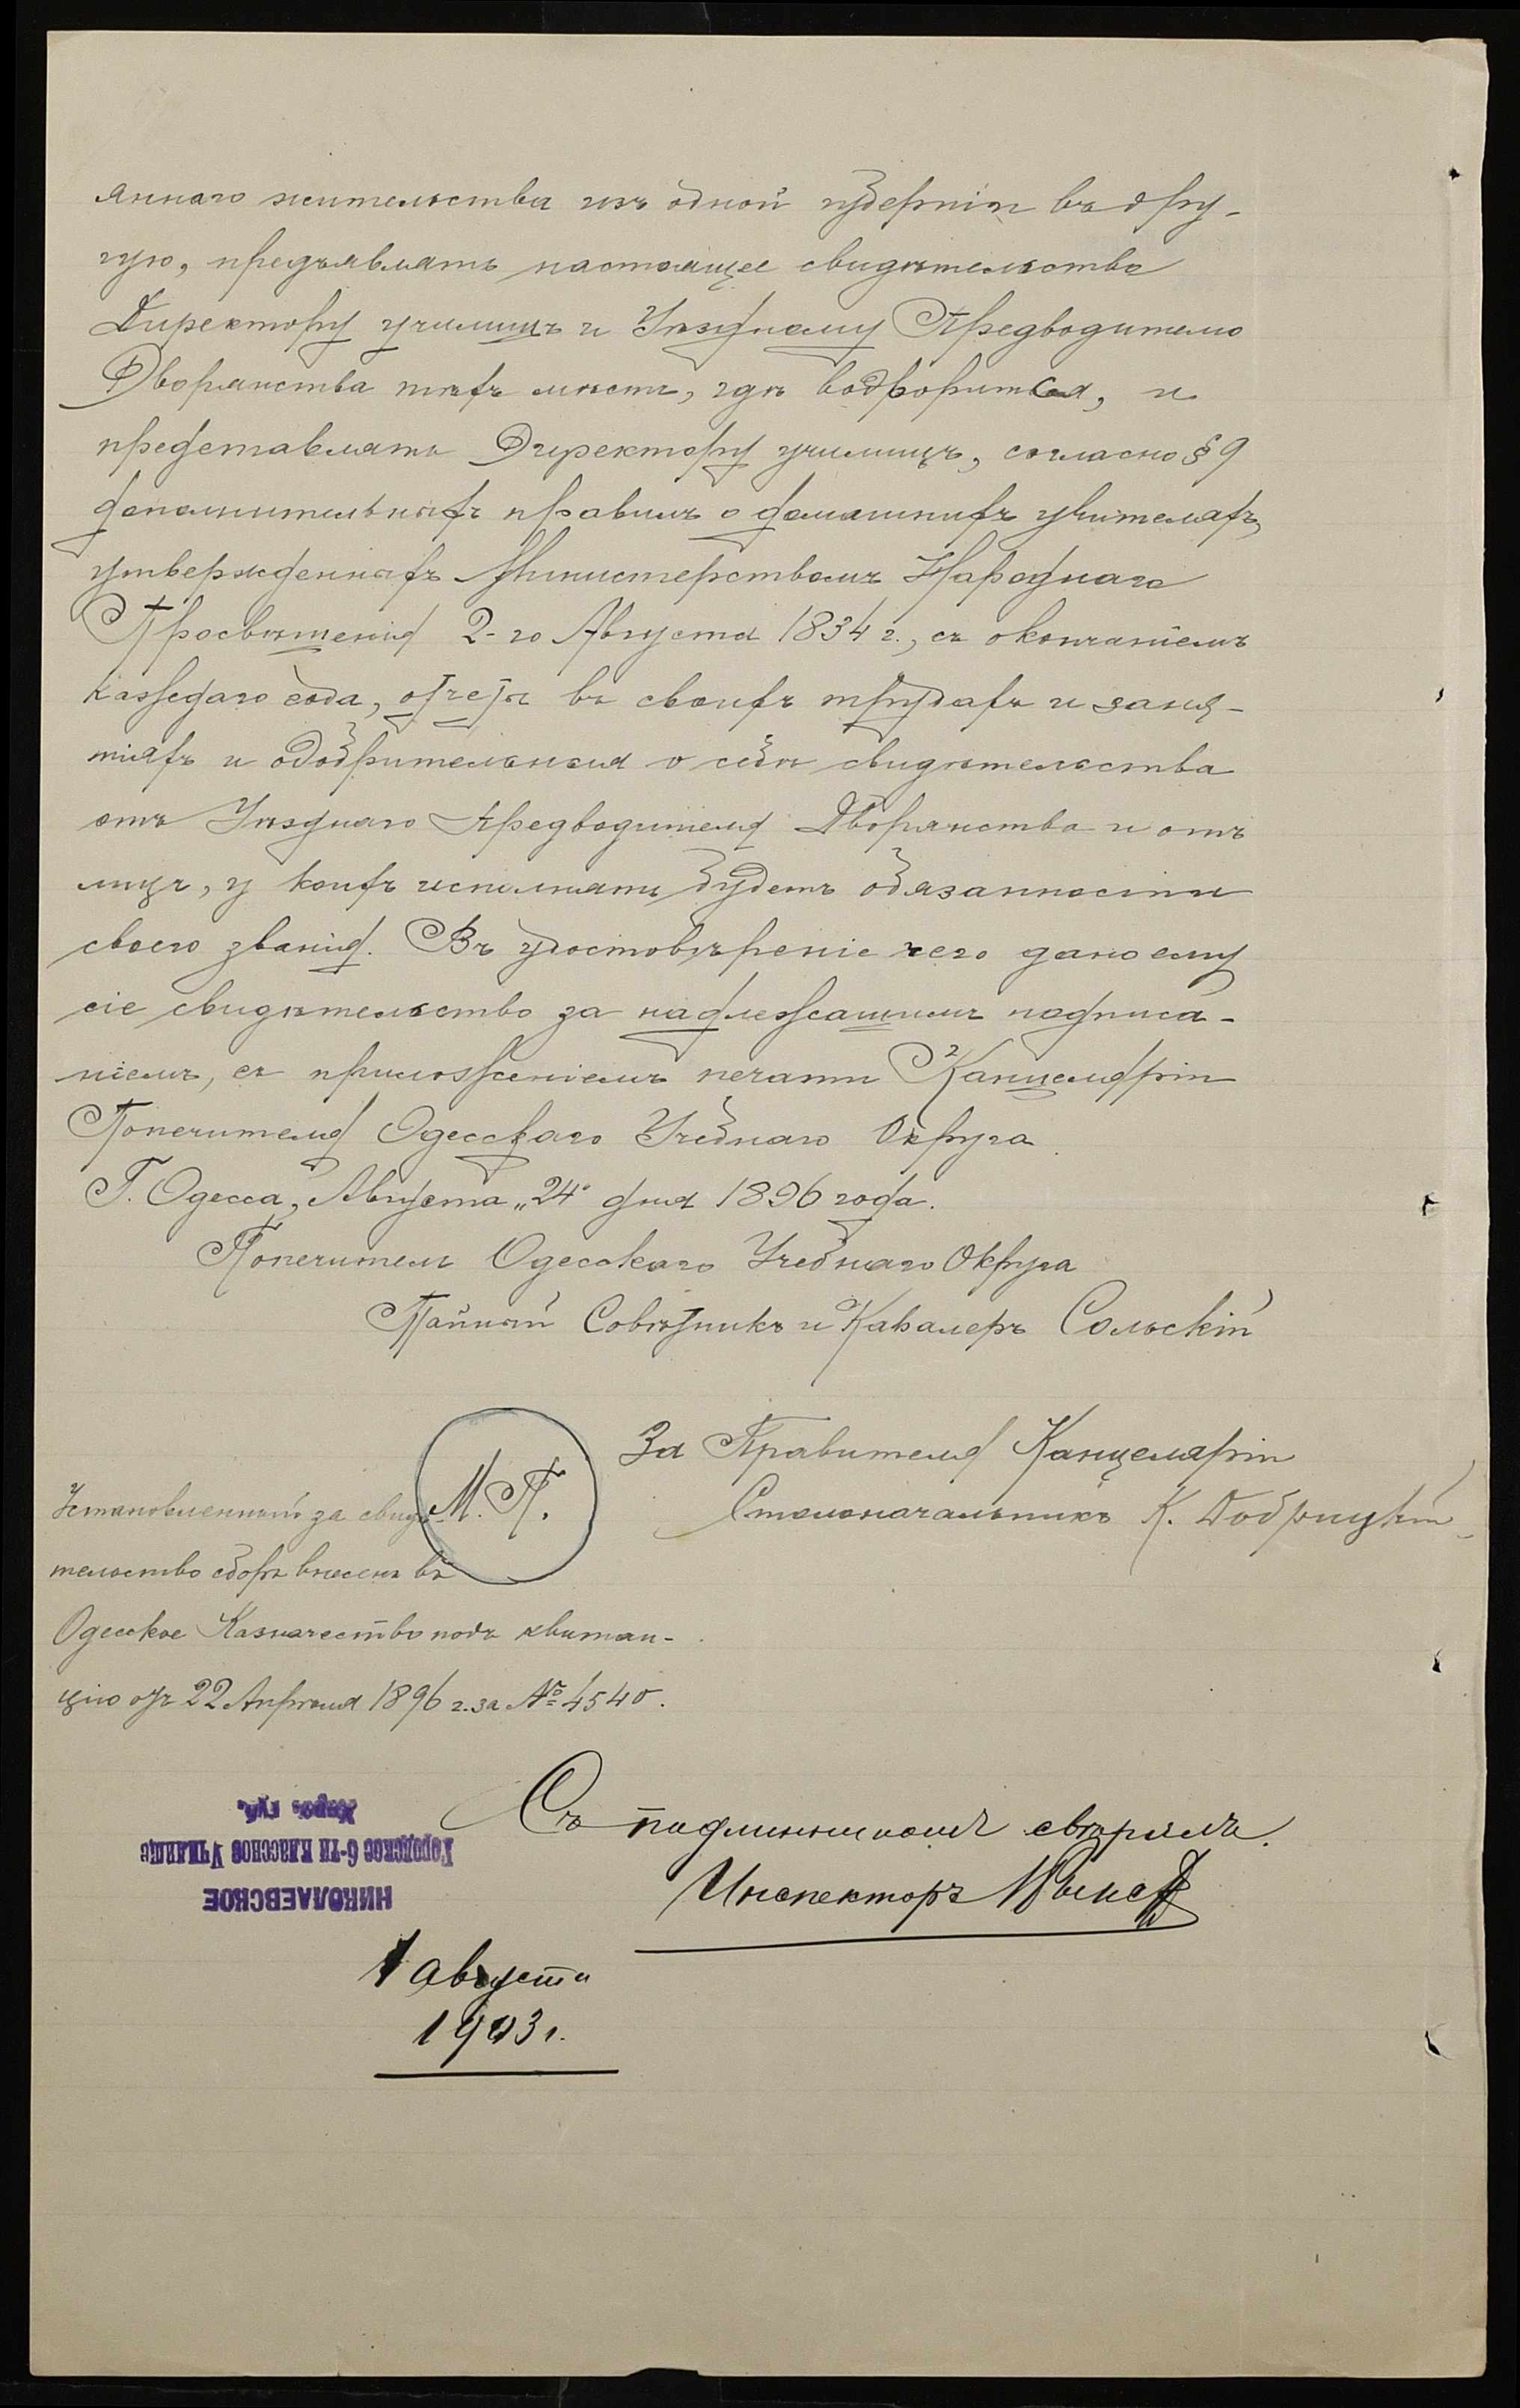 яннаго жительства изъ одной губерніи въ дру-
гую, предъявлять настоящее свидѣтельство
Директору училищъ и Уѣздному Предводителю
Дворянства тѣхъ мѣстъ, гдѣ водворится, и
представлять Директору училищъ, согласно § 9
дополнительныхъ правилъ о домашнихъ учителяхъ,
утвержденныхъ Министерствомъ Народнаго
Просвѣщенія 2-го Августа 1834 г., съ окончаніемъ
каждаго года, отчеты въ своихъ трудахъ и заня-
тіяхъ и одобрительныя о себѣ свидѣтельства
отъ Уѣзднаго Предводителя Дворянства и отъ
лицъ, у коихъ исполнять будетъ обязанности
своего званія. Въ удостовѣреніе чего дано ему
сіе свидѣтельство за надлежащимъ подписа-
ніемъ, съ приложеніемъ печати Канцеляріи
Попечителя Одесскаго Учебнаго Округа
Г. Одесса, Августа „24" дня 1896 года.
Попечитель Одесскаго Учебнаго Округа
Тайный Совѣтникъ и Кавалеръ Сольскій
За Правителя Канцеляріи
Столоначальникъ К. Добрицкій
М. П.
Установленный за свидѣ-
тельство сборъ внесенъ въ
Одесское Казначество подъ квитан-
цію отъ 22 Апрѣля 1896 г. за № 4540.
Съ подлинникомъ свѣрилъ.
Инспекторъ
НИКОЛАЕВСКОЕ
Городское 6-ти классное Училище
Херс. губ.
1 августа
1903 г.